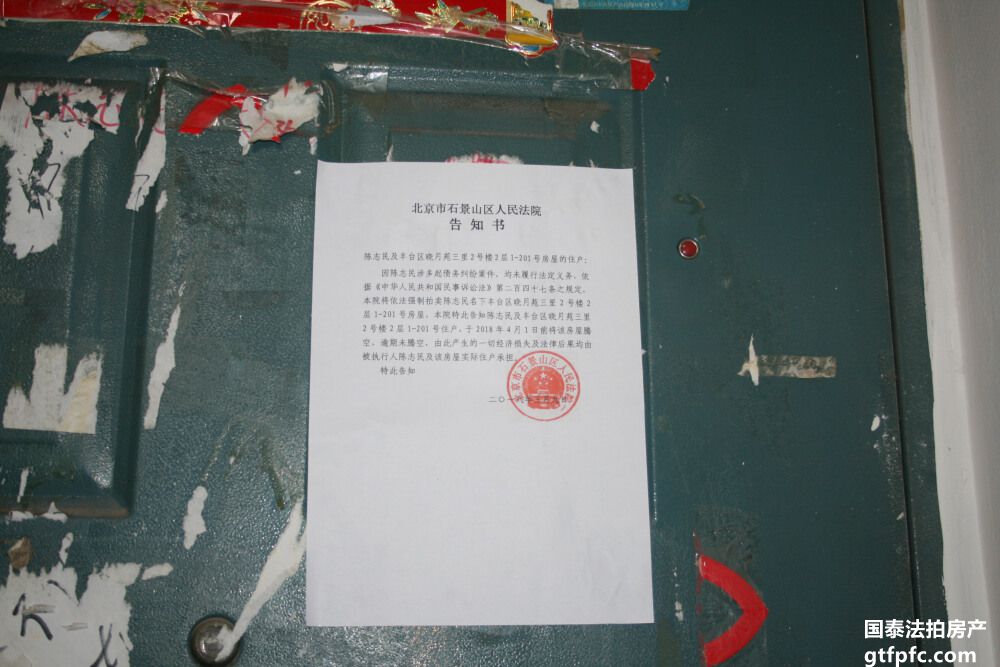 北京市石景山区人民法院
告 知 书
陈志民及丰台区晓月苑三里2号楼2层1-201号房屋的住户:
因陈志民涉多起债务纠纷案件，均未履行法定义务，依
据《中华人民共和国民事诉讼法》第二百四十七条之规定，
本院将依法强制拍卖陈志民名下丰台区晓月苑三里2号楼2
层1-201号房屋。本院特此告知陈志民及丰台区晓月苑三里
2号楼2层1-201号住户，于2018年4月1日前将该房屋腾
空，逾期未腾空，由此产生的一切经济损失及法律后果均由
被执行人陈志民及该房屋实际住户承担。
特此告知
北京市石景山区人民法院
二〇一八年三月
国泰法拍房产
gtfpfc.com